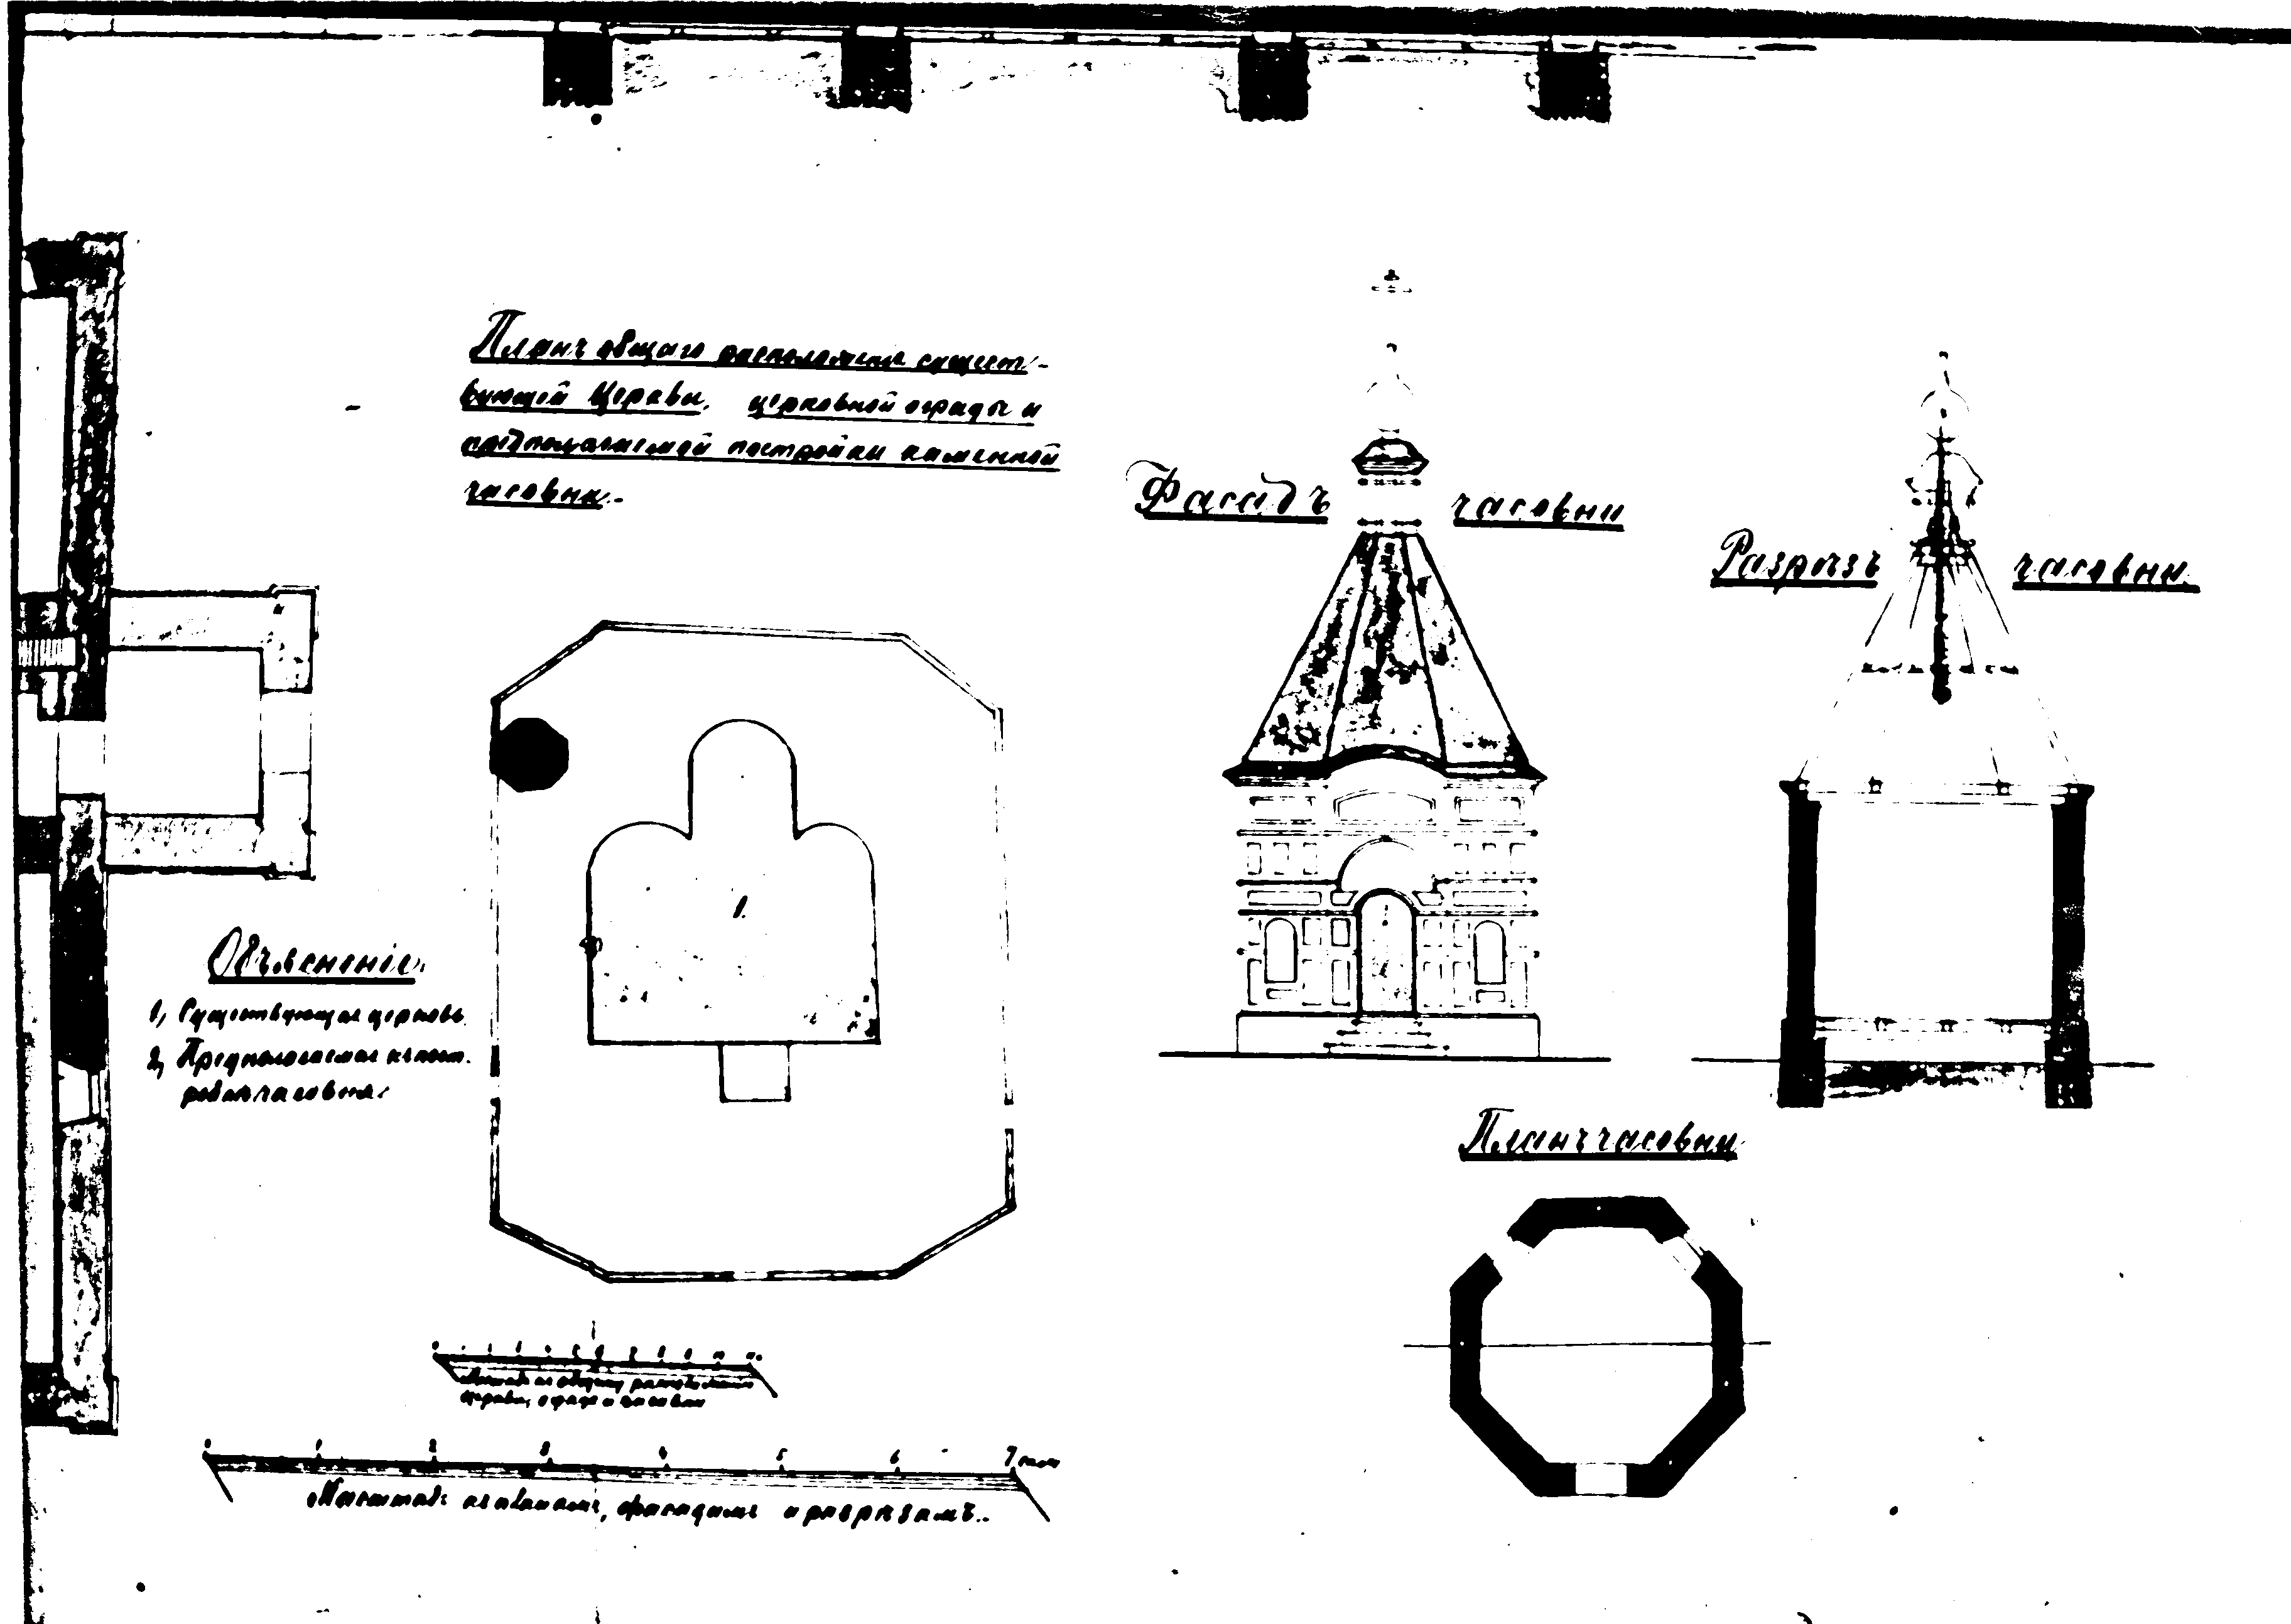 Планъ общаго расположения существ-
вующей Церкви, церковной ограды и
предполагаемой постройки каменной
часовни.
Фасадъ часовни
Разрѣзъ часовни.
1.
Объясненіе.
1, Существующая церковь
2, Предполагаемая къ пост.
часовня.
Планъ часовни
церкви, ограде и часовни
0 1 2 3 4 5 6 7 саж
Масштабъ къ планамъ, фасадамъ и разрѣзамъ..